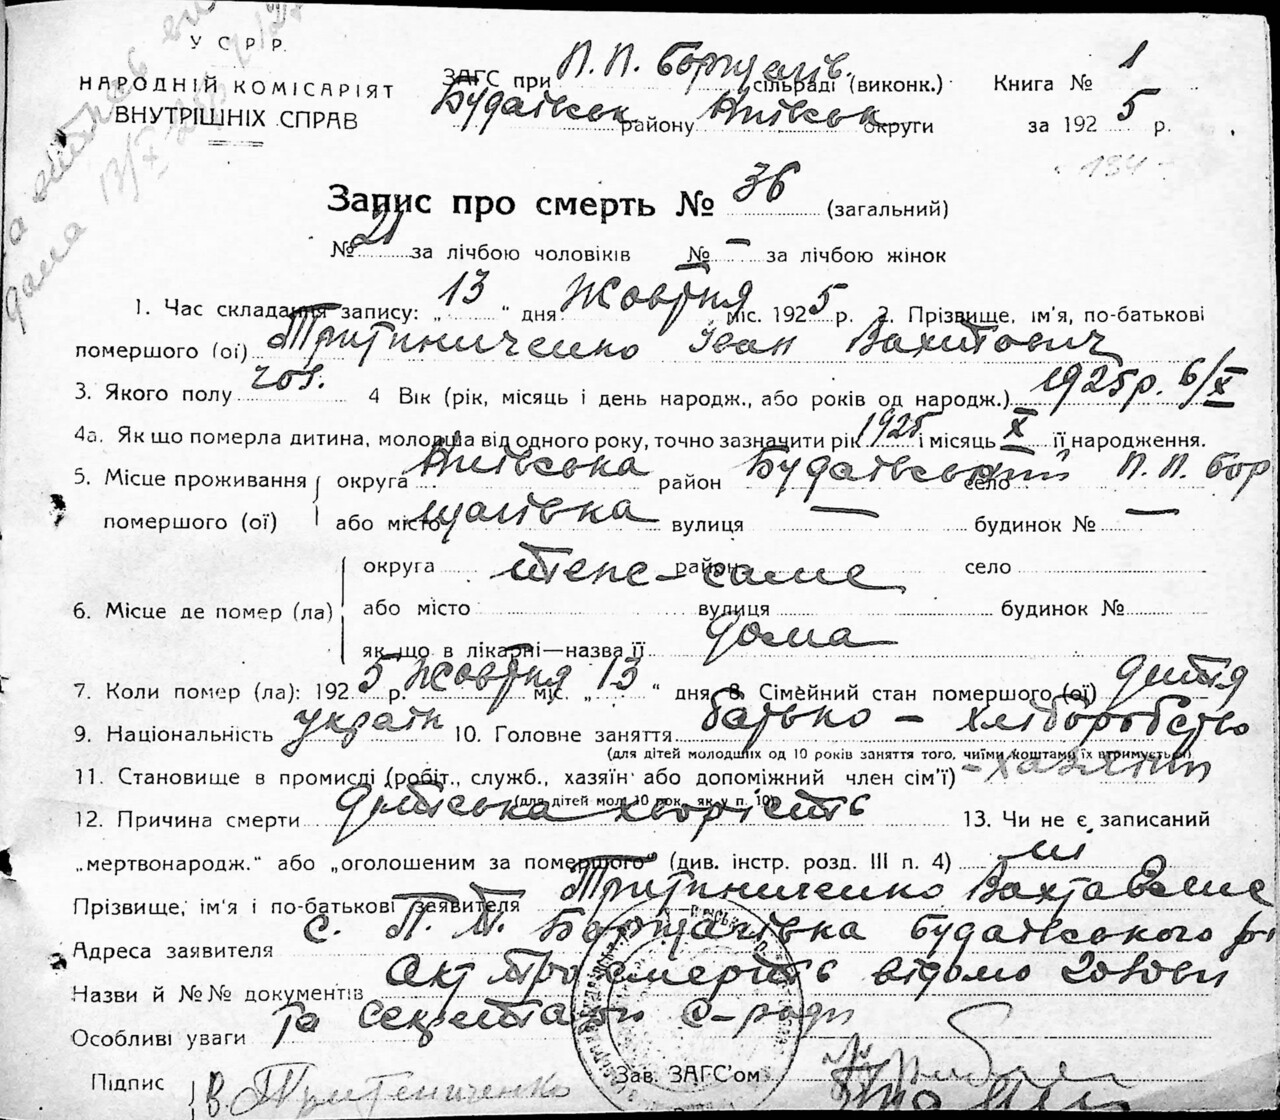 У С Р Р.
НАРОДНІЙ КОМІСАРІЯТ
ВНУТРІШНІХ СПРАВ
ЗАГС при П. П. Борщагів. сільраді (виконк.) Книга № 1
Будаївськ району Київськ округи за 1925 р.
134
Запис про смерть № 36 (загальний)
№ 21 за лічбою чоловіків № – за лічбою жінок
1. Час складання запису: „ 13 “ дня Жовтня міс. 1925 р. 2. Прізвище, ім'я, по-батькові
помершого (ої) Тритиниченко Іван Вахтович
3. Якого полу чол. 4 Вік (рік, місяць і день народж., або років од народж.) 1925р. 6/X
4а. Якщо померла дитина, молодша від одного року, точно зазначити рік 1925 і місяць X її народження.
5. Місце проживання округа Київська район Будаївський село П. П. Бор
помершого (ої) або місто щагівка вулиця — будинок № —
округа район село
теже-саме
6. Місце де помер (ла) або місто вулиця будинок №
як що в лікарні—назва її дома
7. Коли помер (ла): 1925 р. Жовтня міс. „ 13 “ дня 8. Сімейний стан помершого (ої) дитя
9. Національність україн 10. Головне заняття батько – хліборобство
(для дітей молодших од 10 років заняття того, чиїми коштами їх втримується)
11. Становище в промислі (робіт., служб., хазяїн або допоміжний член сім'ї) – хазяїн
(для дітей мол. 10 рок. як у п. 10)
12. Причина смерти дитська хворість 13. Чи не є записаний
„мертвонародж.“ або „оголошеним за помершого“ (див. інстр. розд. III п. 4) ні
Прізвище, ім'я і по-батькові заявителя Тритиниченко
Адреса заявителя с. П. П. Борщагівка Будаївського р-
Назви й №№ документів Акт про смерть відомо голові
Особливі уваги та секретарю С-ради
Підпис В Тритениченко Зав. ЗАГС'ом